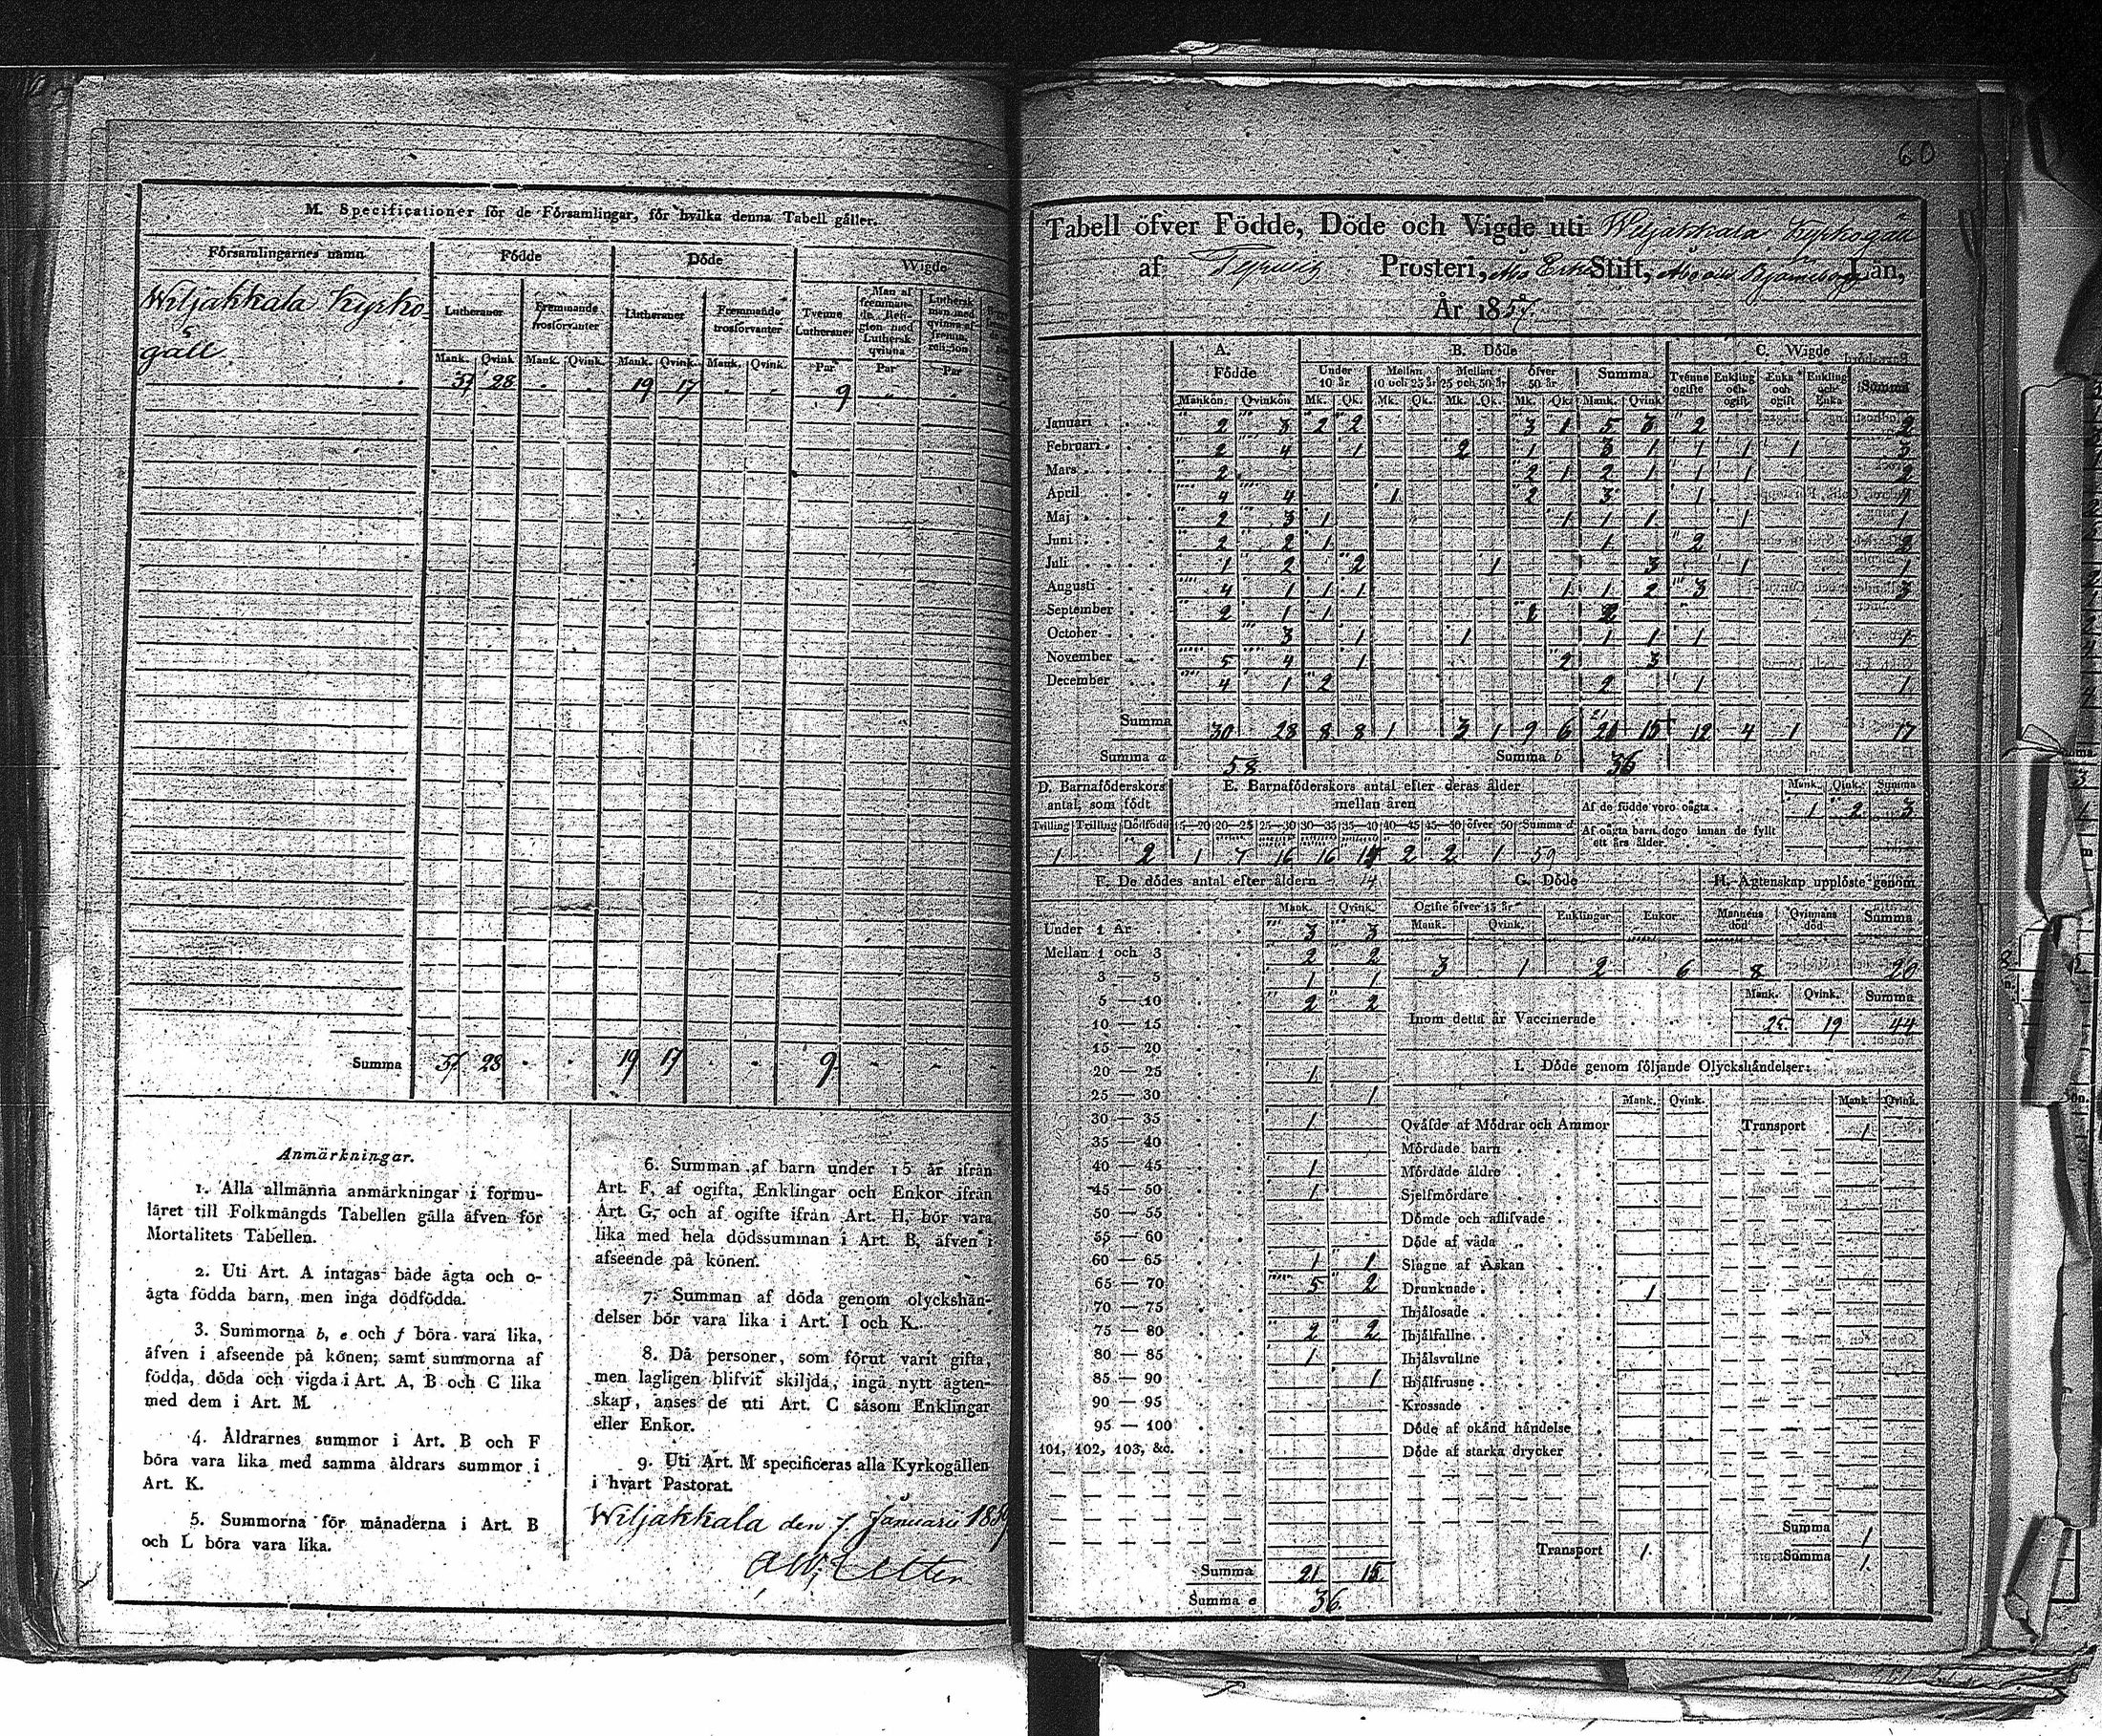 M. Specificationer för de Församlingar, för hvilka denna Tabell gäller.
Församlingarnes namn Födde Döde Wigde
Lutheraner Fremmande trosförvanter Lutheraner Fremmande trosförvanter Tvenne Lutheraner Man af fremmande Religion med Luthersk qvinna Luthersk man med qvinna af fremm. religion
Mank. Qvink Mank. Qvink. Mank. Qvink. Mank. Qvink. Par Par Par
Wiljakkala Kyrko-
gäll
37 28 19 17 9
Summa 37 28 19 17 9
Anmärkningar.
1. Alla allmänna anmärkningar i formu-
läret till Folkmängds Tabellen gälla äfven för
Mortalitets Tabellen.
2. Uti Art. A intagas både ägta och o-
ägta födda barn, men inga dödfödda.
3. Summorna b, e och f böra vara lika,
äfven i afseende på könen; samt summorna af
födda, döda och vigda i Art. A, B och C lika
med dem i Art. M.
4. Åldrarnes summor i Art. B och F
böra vara lika med samma åldrars summor i
Art. K.
5. Summorna för månaderna i Art. B
och L böra vara lika.
6. Summan af barn under 15 år ifrån
Art. F, af ogifta, Enklingar och Enkor ifrån
Art. G, och af ogifte ifrån Art. H, bör vara
lika med hela dödssumman i Art. B, äfven i
afseende på könen.
7. Summan af döda genom olyckshän-
delser bör vara lika i Art. I och K.
8. Då personer, som förut varit gifta,
men lagligen blifvit skiljda, ingå nytt ägten-
skap, anses de uti Art. C såsom Enklingar
eller Enkor.
9. Uti Art. M specificeras alla Kyrkogällen
i hvart Pastorat.
Wiljakkala den 7 Januarii
60
Tabell öfver Födde, Döde och Vigde uti Wiljakkala Kyrkogäll
af Prosteri, Åbo Erke Stift, Åbo och Björneborgs Län,
År 1857.
A. Födde B. Döde C. Wigde
Under 10 år Mellan 10 och 25 år Mellan 25 och 50 år öfver 50 år Summa Tvenne ogifte Enkling och ogift Enka och ogift Enkling och Enka Summa
Mankön. Qvinkön Mk. Qk. Mk. Qk. Mk. Qk. Mk. Qk. Mank. Qvink
Januari 2 3 2 2 3 1 5 3 2 2
Februari 2 4 1 2 1 3 1 1 1 1 3
Mars 2 2 1 2 1 1 1 2
April 4 4 1 2 3 1 1
Maj 2 3 1 1 1 1 1 1
Juni 2 2 1 1 2 2
Juli 1 2 2 1 3 1 1
Augusti 4 1 1 1 1 1 2 3 3
September 2 1 1 1 2
October 3 1 1 1 1 1 1
November 5 4 1 2 3
December 4 1 2 2 1 1
Summa 30 28 8 8 1 3 1 9 6 15 12 4 1 17
Summa a 58 Summa b 36
D. Barnaföderskors antal, som födt E. Barnaföderskors antal efter deras ålder mellan åren
Tvilling Trilling Dödfödd 15—20 20—25 25—30 30—35 35—40 40—45 45—50 öfver 50 Summa d
1 2 1 7 16 16 14 2 2 1 59
Mank. Qink. Summa
Af de födde voro oägta 1 2 3
Af oägta barn dogo innan de fyllt ett års ålder
F. De dödes antal efter åldern
Mank. Qvink.
Under 1 År 3 3
Mellan 1 och 3 2 2
3 — 5 1 1
5 — 10 2 2
10 — 15
15 — 20
20 — 25 1
25 — 30 1
30 — 35 1
35 — 40
40 — 45 1
45 — 50 1
50 — 55
55 — 60
60 — 65 1 1
65 — 70 5 2
70 — 75
75 — 80 2 2
80 — 85 1
85 — 90 1
90 — 95
95 — 100
101, 102, 103, &c.
Summa 21 15
Summa e 36.
G. Döde H. Ägtenskap upplöste genom
Ogifte öfver 15 år Enklingar Enkor Mannens död Qvinnans död Summa
Mank. Qvink.
3 1 2 6 8 20
Mank. Qvink. Summa
Inom detta år Vaccinerade 25 19 44
I. Döde genom följande Olyckshändelser:
Mank. Qvink. Mank Qvink.
Qväfde af Mödrar och Ammor Transport 1
Mördade barn
Mördade äldre
Sjelfmördare
Dömde och aflifvade
Döde af våda
Slagne af Åskan
Drunknade 1
Ihjälosade
Ihjälfallne
Ihjälsvultne
Ihjälfrusne
Krossade
Döde af okänd händelse
Döde af starka drycker
Summa 1
Transport 1. Summa 1.